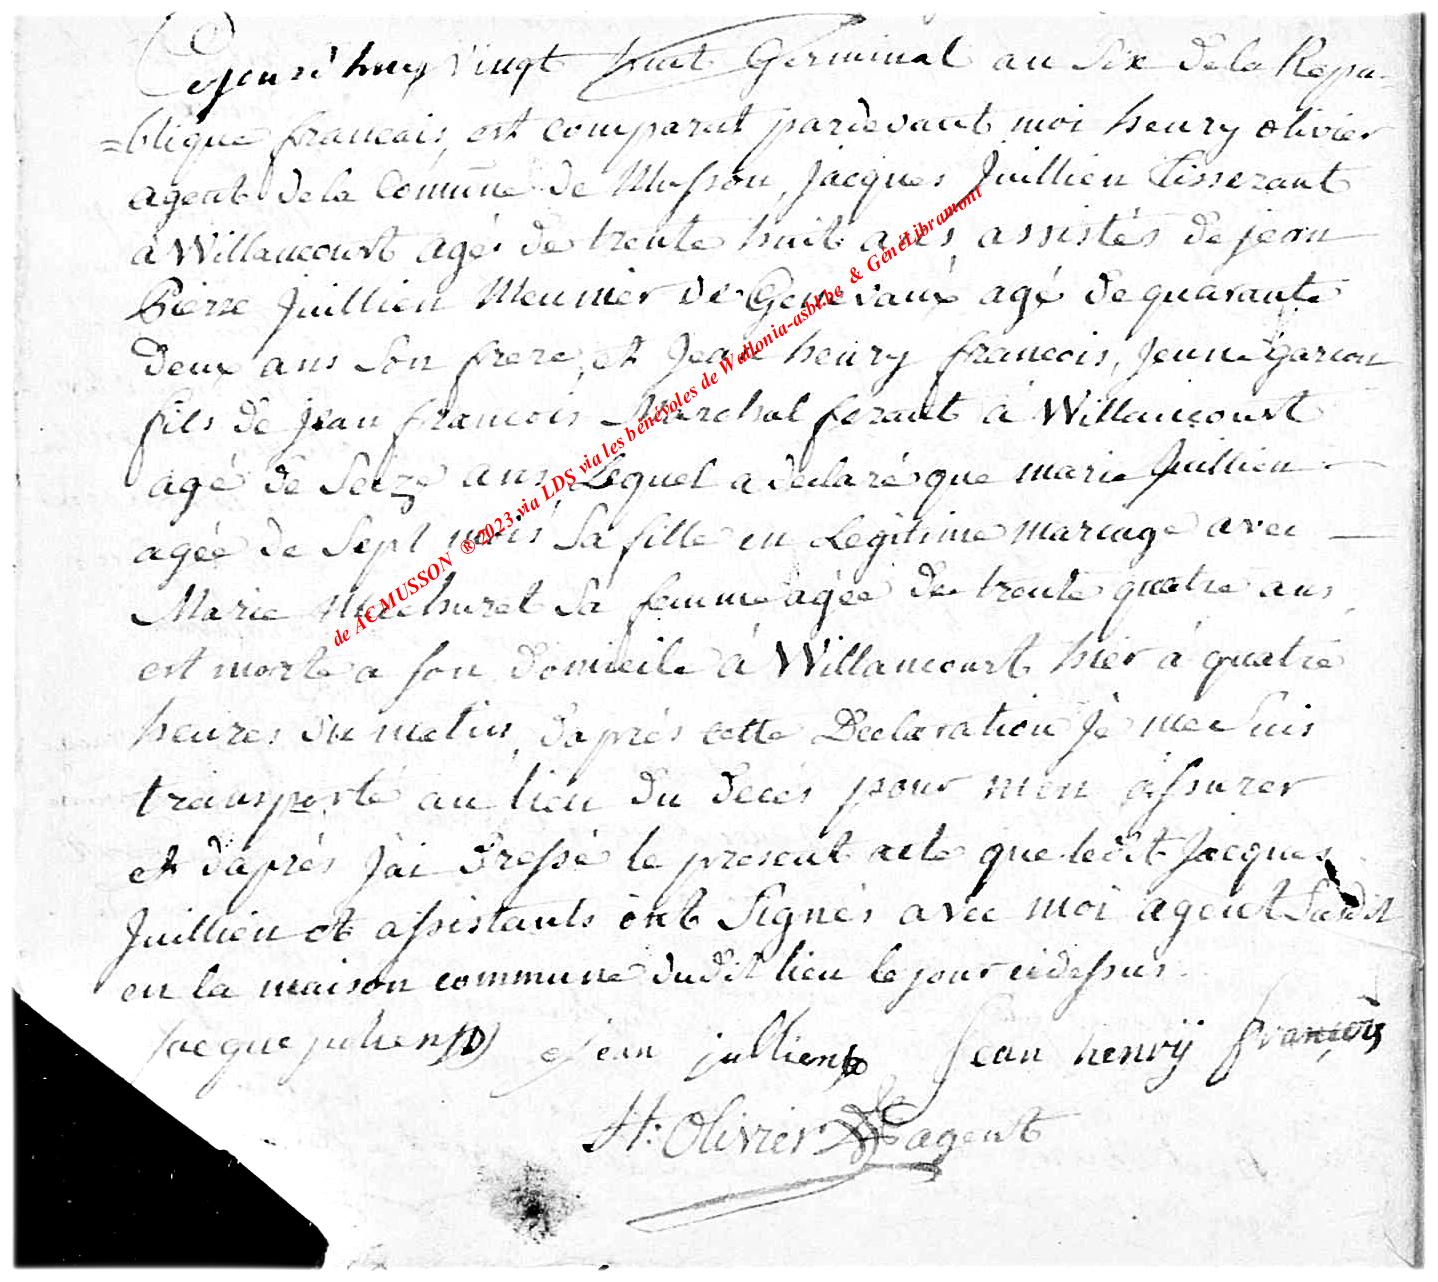 Cejourd'huy vingt huit Germinal an Six dela Repu-
=blique francais, est comparut pardevant moi henry olivier
agent dela Commune de Musson, Jacques Juillien Tisserant
a Willancourt agé de trente huit ans assistés de jean
Pierre Juillien Meunier de Genevaux agé de quarante
deux ans Son frere, et Jean henry francois, Jeune garcon
fils de jean francois Marchal ferant à Willancourt
agé de Seize ans, Lequel a declaré que marie Juillien
agée de Sept mois Sa fille en Legitime mariage avec
Marie Machuret Sa femme agée de trente quatre ans,
est morte a son domicile à Willancourt hier à quatre
heures du matin, d'aprés cette Declaration Je me Suis
transporté au lieu du decés pour m'en assurer
et d'aprés J'ai dressé le present acte que ledit Jacques
Juillien et assistants ont Signés avec moi agent Susdit
en la maison commune dudit lieu le jour cidessus.
jacque julien jean jullien Jean henrÿ françois
H: Olivier agent
de AC MUSSON ® 2023 via LDS via les bénévoles de Wallonia-asbl.be & GénéLibramont